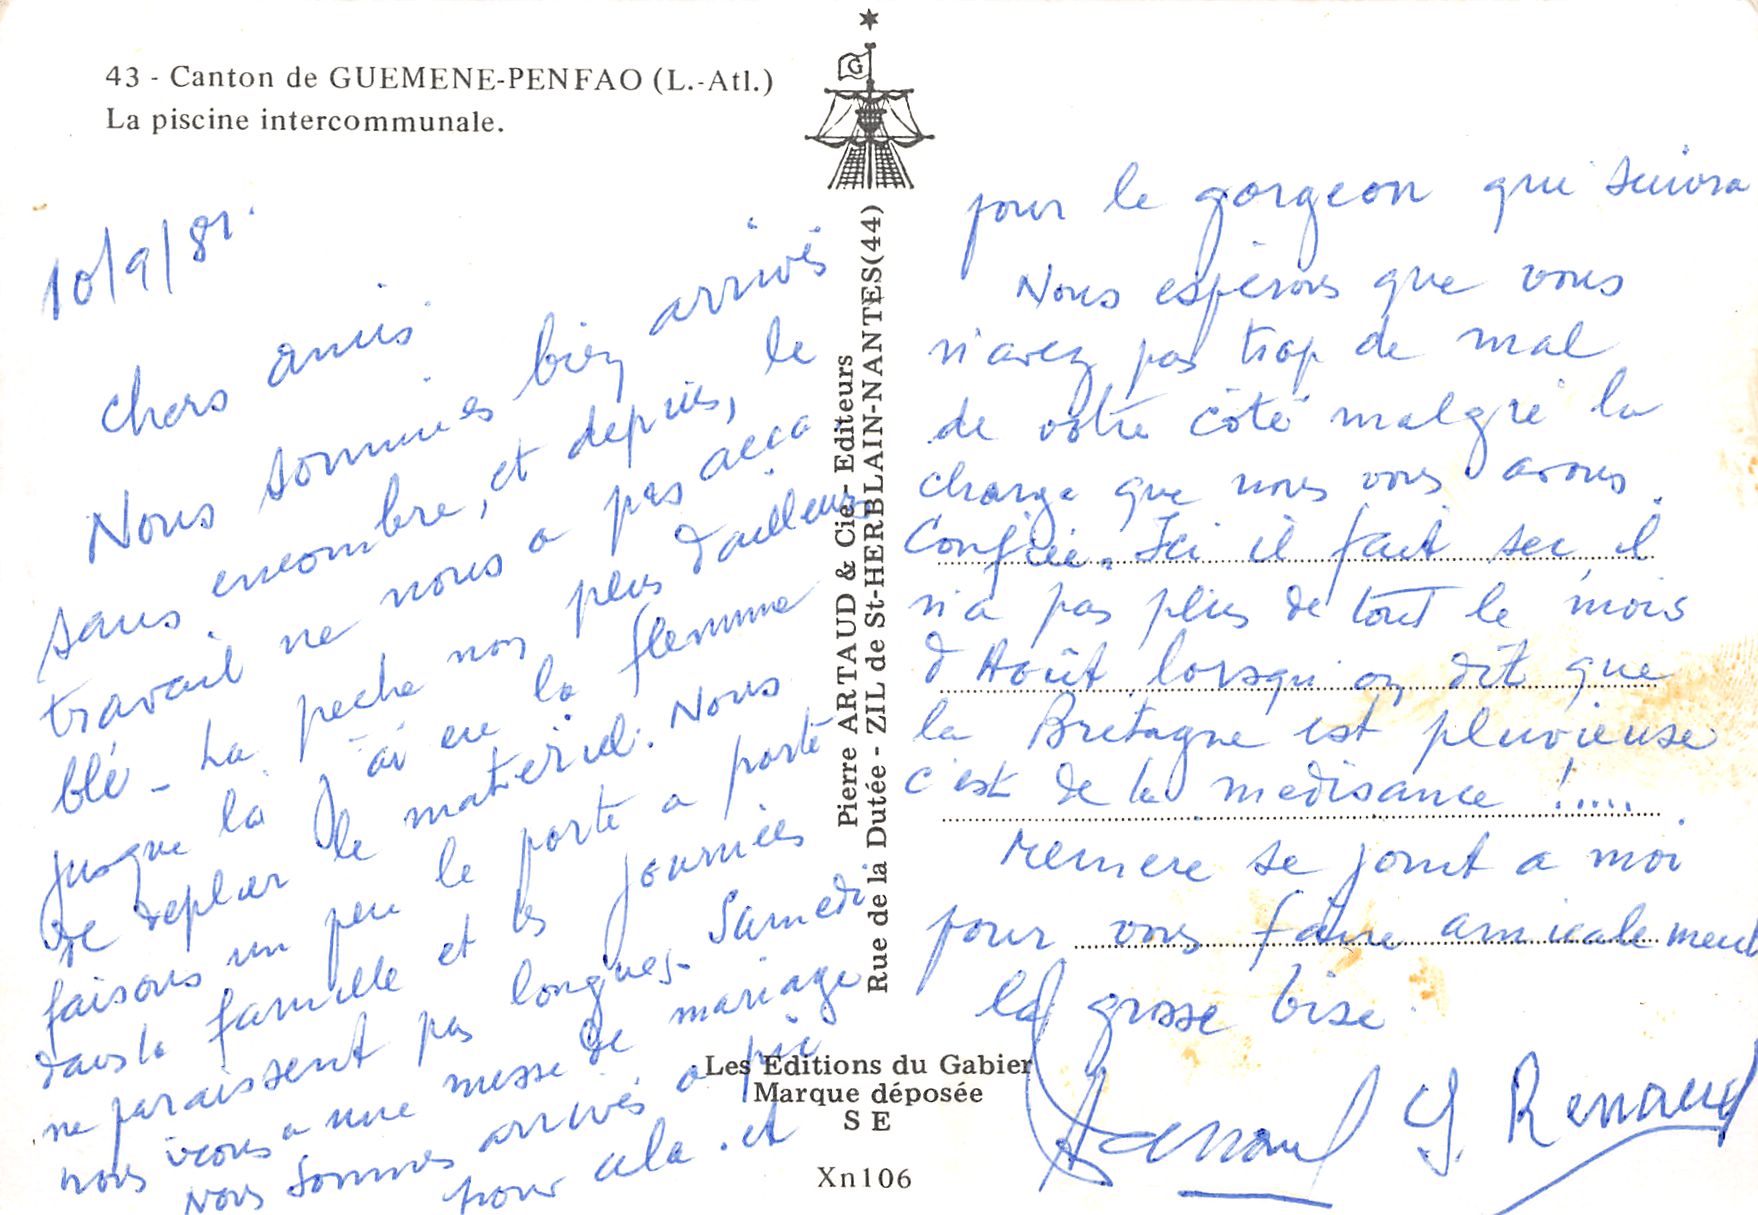 43 - Canton de GUEMENE-PENFAO (L.-Atl.)
La piscine intercommunale.
10/9/81.
Chers amis
Nous sommes bien arrivés
sans encombre, et depuis, le
travail ne nous a pas acca
blé - La peche non plus d'ailleurs
jusque là j'ai eu la flemme
de deplier le matériel. Nous
faisons un peu le porte a porte
dans la famille et les journées
ne paraissent pas longues - Samedi
nous irons a une messe de mariage
Nous sommes arrivés a pic
pour cela. et
G
Pierre ARTAUD & Cie - Editeurs
Rue de la Dutée - ZIL de St-HERBLAIN-NANTES(44)
Les Editions du Gabier
Marque déposée
S E
Xn106
pour le gorgeon qui suivra
Nous espérons que vous
n'avez pas trop de mal
de votre côté malgré la
charge que nous vous avons
Confiée. Ici il fait sec il
n'a pas plus de tout le mois
d'Août lorsqu'on dit que
la Bretagne est pluvieuse
c'est de la medisance !.....
se joint a moi
pour vous faire amicalement
la grosse bise
G. Renaud